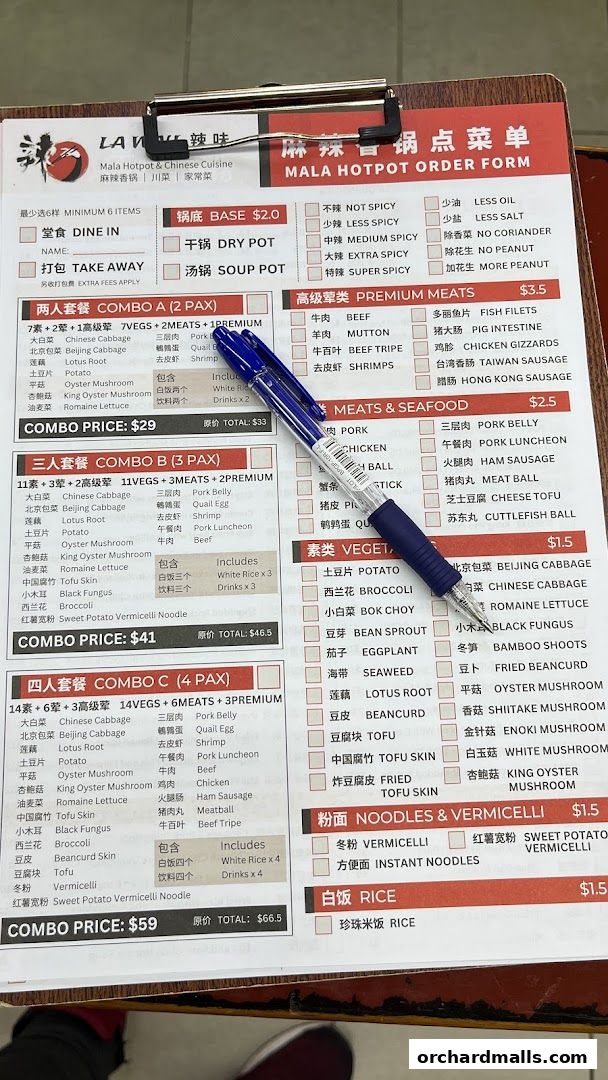 辣味
Mala Hotpot & Chinese Cuisine
麻辣香锅 | 川菜 | 家常菜
麻辣香锅点菜单
MALA HOTPOT ORDER FORM
最少选6样 MINIMUM 6 ITEMS
堂食 DINE IN
NAME:
打包 TAKE AWAY
另收打包费 EXTRA FEES APPLY
锅底 BASE $2.0
干锅 DRY POT
汤锅 SOUP POT
不辣 NOT SPICY
少辣 LESS SPICY
中辣 MEDIUM SPICY
大辣 EXTRA SPICY
特辣 SUPER SPICY
少油 LESS OIL
少盐 LESS SALT
除香菜 NO CORIANDER
除花生 NO PEANUT
加花生 MORE PEANUT
两人套餐 COMBO A (2 PAX)
7素 + 2荤 + 1高级荤 7VEGS + 2MEATS + 1PREMIUM
大白菜 Chinese Cabbage
北京包菜 Beijing Cabbage
莲藕 Lotus Root
土豆片 Potato
平菇 Oyster Mushroom
杏鲍菇 King Oyster Mushroom
油麦菜 Romaine Lettuce
三层肉 Pork
鹌鹑蛋 Quail
去皮虾 Shrimp
包含
白饭两个 White
饮料两个 Drinks x 2
COMBO PRICE: $29 原价 TOTAL: $33
三人套餐 COMBO B (3 PAX)
11素 + 3荤 + 2高级荤 11VEGS + 3MEATS + 2PREMIUM
大白菜 Chinese Cabbage
北京包菜 Beijing Cabbage
莲藕 Lotus Root
土豆片 Potato
平菇 Oyster Mushroom
杏鲍菇 King Oyster Mushroom
油麦菜 Romaine Lettuce
中国腐竹 Tofu Skin
小木耳 Black Fungus
西兰花 Broccoli
红薯宽粉 Sweet Potato Vermicelli Noodle
三层肉 Pork Belly
鹌鹑蛋 Quail Egg
去皮虾 Shrimp
午餐肉 Pork Luncheon
牛肉 Beef
包含 Includes
白饭三个 White Rice x 3
饮料三个 Drinks x 3
COMBO PRICE: $41 原价 TOTAL: $46.5
四人套餐 COMBO C (4 PAX)
14素 + 6荤 + 3高级荤 14VEGS + 6MEATS + 3PREMIUM
大白菜 Chinese Cabbage
北京包菜 Beijing Cabbage
莲藕 Lotus Root
土豆片 Potato
平菇 Oyster Mushroom
杏鲍菇 King Oyster Mushroom
油麦菜 Romaine Lettuce
中国腐竹 Tofu Skin
小木耳 Black Fungus
西兰花 Broccoli
豆皮 Beancurd Skin
豆腐块 Tofu
冬粉 Vermicelli
红薯宽粉 Sweet Potato Vermicelli Noodle
三层肉 Pork Belly
鹌鹑蛋 Quail Egg
去皮虾 Shrimp
午餐肉 Pork Luncheon
牛肉 Beef
鸡肉 Chicken
火腿肠 Ham Sausage
猪肉丸 Meatball
牛百叶 Beef Tripe
包含 Includes
白饭四个 White Rice x 4
饮料四个 Drinks x 4
COMBO PRICE: $59 原价 TOTAL: $66.5
高级荤类 PREMIUM MEATS $3.5
牛肉 BEEF
羊肉 MUTTON
牛百叶 BEEF TRIPE
去皮虾 SHRIMPS
多丽鱼片 FISH FILETS
猪大肠 PIG INTESTINE
鸡胗 CHICKEN GIZZARDS
台湾香肠 TAIWAN SAUSAGE
腊肠 HONG KONG SAUSAGE
MEATS & SEAFOOD $2.5
肉 PORK
CHICKEN
BALL
蟹条 STICK
猪皮
鹌鹑蛋
三层肉 PORK BELLY
午餐肉 PORK LUNCHEON
火腿肠 HAM SAUSAGE
猪肉丸 MEAT BALL
芝士豆腐 CHEESE TOFU
苏东丸 CUTTLEFISH BALL
素类 $1.5
土豆片 POTATO
西兰花 BROCCOLI
小白菜 BOK CHOY
豆芽 BEAN SPROUT
茄子 EGGPLANT
海带 SEAWEED
莲藕 LOTUS ROOT
豆皮 BEANCURD
豆腐块 TOFU
中国腐竹 TOFU SKIN
炸豆腐皮 FRIED
TOFU SKIN
北京包菜 BEIJING CABBAGE
CHINESE CABBAGE
ROMAINE LETTUCE
小木耳 BLACK FUNGUS
冬笋 BAMBOO SHOOTS
豆卜 FRIED BEANCURD
平菇 OYSTER MUSHROOM
香菇 SHIITAKE MUSHROOM
金针菇 ENOKI MUSHROOM
白玉菇 WHITE MUSHROOM
杏鲍菇 KING OYSTER
MUSHROOM
粉面 NOODLES & VERMICELLI $1.5
冬粉 VERMICELLI
方便面 INSTANT NOODLES
红薯宽粉 SWEET POTATO
VERMICELLI
白饭 RICE $1.5
珍珠米饭 RICE
orchardmalls.com